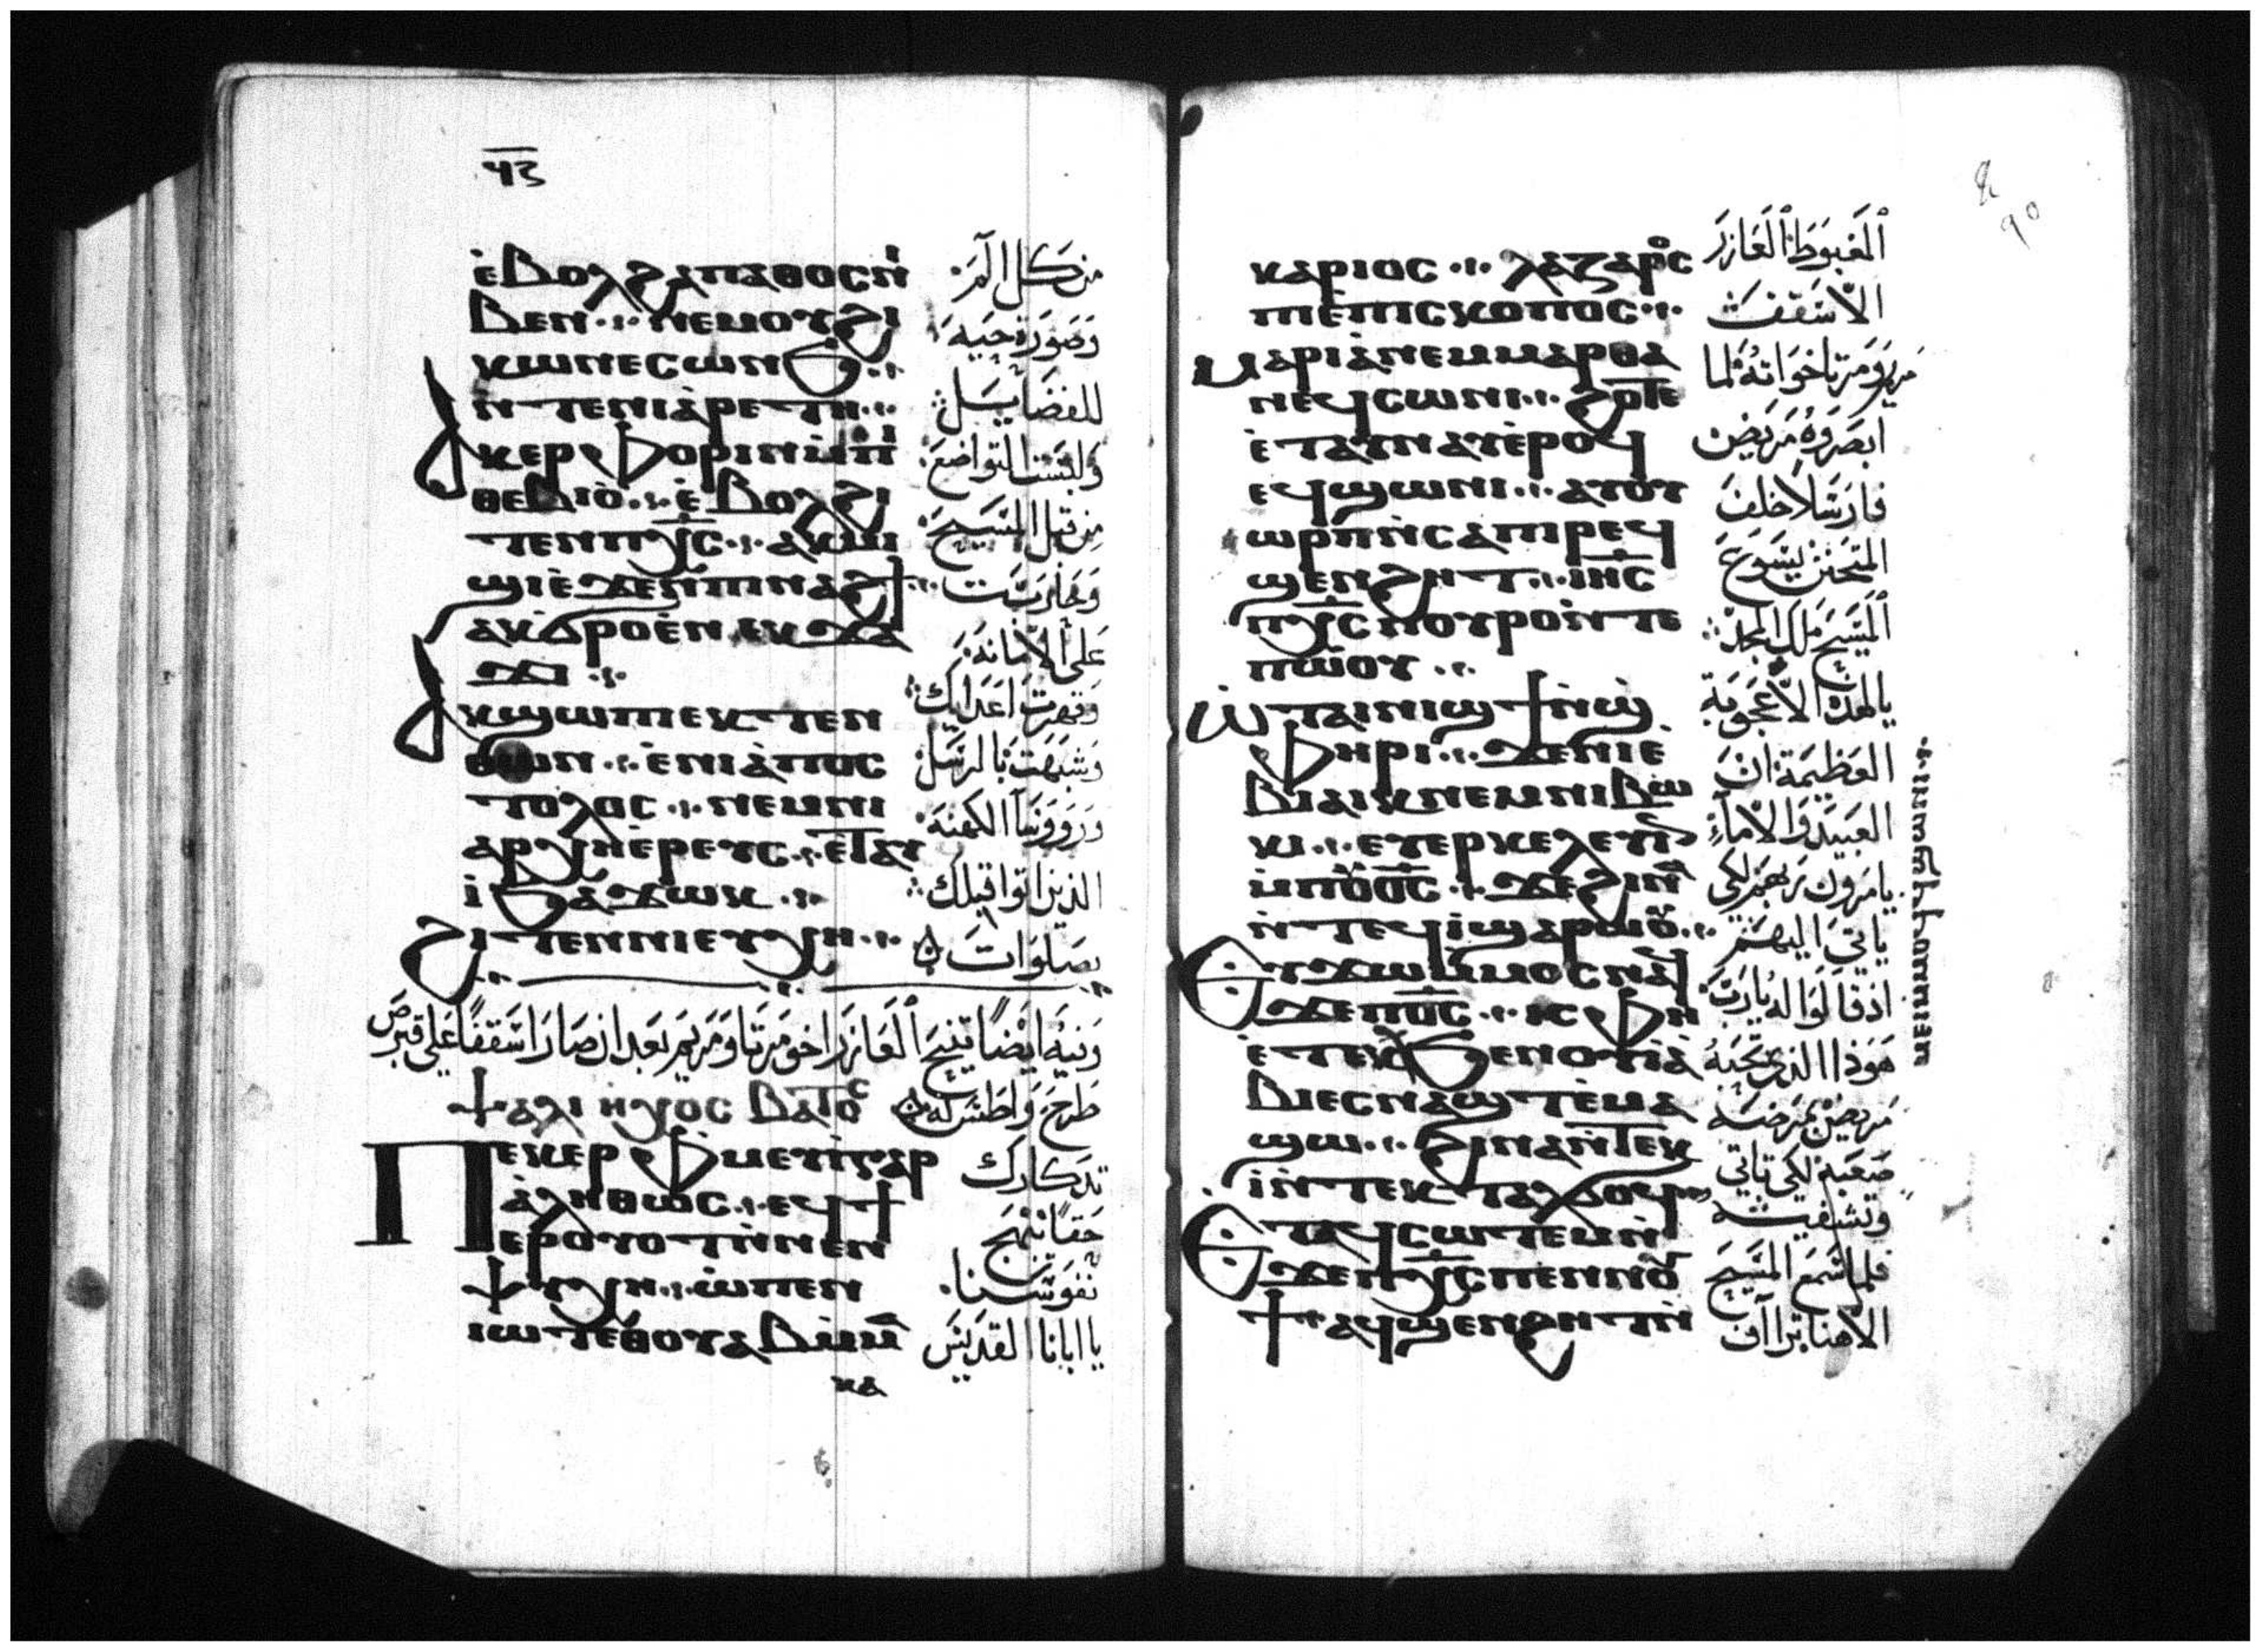 ϥⲍ
ⲉ̀ⲃⲟⲗϩⲁⲡⲁⲑⲟⲥⲛ̀
ⲃⲉⲛ ⲛⲉⲙⲟⲩϩⲓ
ⲕⲱⲛⲉⲥⲱⲛϧ
ⲛ̀ⲧⲉⲛⲓⲁ̀ⲣⲉⲧⲏ
ⲁⲕⲉⲣⲫⲟⲣⲓⲛⲙ̀ⲡ
ⲑⲉⲃⲓⲟ̀ ⲉ̀ⲃⲟⲗϩⲓ
ⲧⲉⲛⲡⲭ̅ⲥ̅ ⲁⲕⲙⲓ
ϣⲓⲉ̀ϫⲉⲛⲡⲓⲛⲁϩϯ
ⲁⲕϭⲣⲟⲉ̀ⲛⲉⲕϫⲁ
ϫⲓ
ⲁⲕϣⲱⲡⲉⲕⲧⲉⲛ
ⲑⲱⲛ ⲉ̀ⲛⲓⲁ̀ⲡⲟⲥ
ⲧⲟⲗⲟⲥ ⲛⲉⲙⲛⲓ
ⲁⲣⲭⲏⲉ̀ⲣⲉⲩⲥ ⲉⲧⲁⲩ
ⲓ̀ϧⲁϫⲱⲕ
ϩⲓⲧⲉⲛⲛⲓⲉⲩⲭⲏ
من كل الم
وصورة حيه
للفضايل
ولبست التواضع
من قبل المسيح
وحاربت
على الامانه
وقهرت اعدايك
وشبهت بالرسل
وروونسا الكهنه
الذين اتوا قبلك
بصلوات
وفيه ايضا تنيح العازر اخو مرتا ومريم بعد ان صار اسقفا على قبرص
ⲯⲁⲗⲓ ⲏⲭⲟⲥ ⲃⲁⲧⲟⲥ طرح واطس له
ⲡⲉⲕⲉⲣⲫⲙⲉⲩⲓ̀ⲅⲁⲣ
ⲁ̀ⲗⲏⲑⲱⲥ ⲉϥϯ
ⲉⲣⲟⲩⲟⲧⲛ̀ⲛⲉⲛ
ⲯⲩⲭⲏ ⲱ̀ⲡⲉⲛ
ⲓⲱⲧⲉⲑⲟⲩⲁⲃⲙ̀ⲙ
تدكارك
حقا نبهج
نفوسنا
يا ابانا القديس
ⲕⲁ
ⲕⲁⲣⲓⲟⲥ ⲗⲁⲍⲁⲣⲟⲥ
ⲡⲓⲉ̀ⲡⲓⲥⲕⲟⲡⲟⲥ
ⲙⲁⲣⲓⲁ̀ⲛⲉⲙⲙⲁⲣⲑⲁ
ⲛⲉϥⲥⲱⲛⲓ ϩⲟⲧⲉ
ⲉ̀ⲧⲁⲩⲛⲁⲩⲉ̀ⲣⲟϥ
ⲉϥϣⲱⲛⲓ ⲁⲩⲟⲩ
ⲱⲣⲡⲛ̀ⲥⲁⲡⲓⲣⲉϥ
ϣⲉⲛϩⲏⲧ ⲓⲏⲥ
ⲡⲭ̅ⲥ̅ⲡⲟⲩⲣⲟⲛ̀ⲧⲉ
ⲡⲱ̀ⲟⲩ
ⲱ̀ⲧⲁⲓⲛⲓϣϯⲛ̀ϣ
ⲫⲏⲣⲓ ϫⲉⲛⲓⲉ̀
ⲃⲓⲁⲓⲕⲛⲉⲙⲛⲓⲃⲱ
ⲕⲓ ⲉⲩⲉⲣⲕⲉⲗⲉⲩⲓⲛ
ⲙ̀ⲡⲟⲩϭ̅ⲥ̅ ϫⲉϩⲓⲛⲁ
ⲛ̀ⲧⲉϥⲓ̀ϣⲁⲣⲱⲟⲩ
ⲉⲩϫⲱⲙ̀ⲙⲟⲥⲛⲁϥ
ϫⲉⲡϭ̅ⲥ̅ ⲓⲥⲫⲏ
ⲉ̀ⲧⲉⲕϧⲉⲛⲟⲩⲓⲁ̀
ⲃⲓⲉⲥⲛⲁϣⲧⲉ̀ⲙⲁ
ϣⲱ ϩⲓⲛⲁⲛ̀ⲧⲉⲕ
ⲓ̀ⲛ̀ⲧⲉⲕⲧⲁⲗϭⲟϥ
ⲉⲧⲁϥⲥⲱⲧⲉⲙⲛ̀
ϫⲉⲡⲭ̅ⲥ̅ⲡⲉⲛⲛⲟⲩ
ϯ ⲁϥϣⲉⲛϩⲏⲧⲛ̀
المغبوط العازر
الاسقف
مريم ومرتا اخواته لما
ابصروه مريض
فارسلا خلف
المتحنن يسوع
المسيح ملك المجد
يالهذا الاعجوبة
العظيمة ان
العبيد والاماء
يامروك ربهم لكي
ياتي اليهم
اذ قالوا له يارب
هوذا الذي تحبه
مريض بمرض
صعبة لكي تاتي
وتشفيه
فلما سمع المسيح
الاهنا ترااف